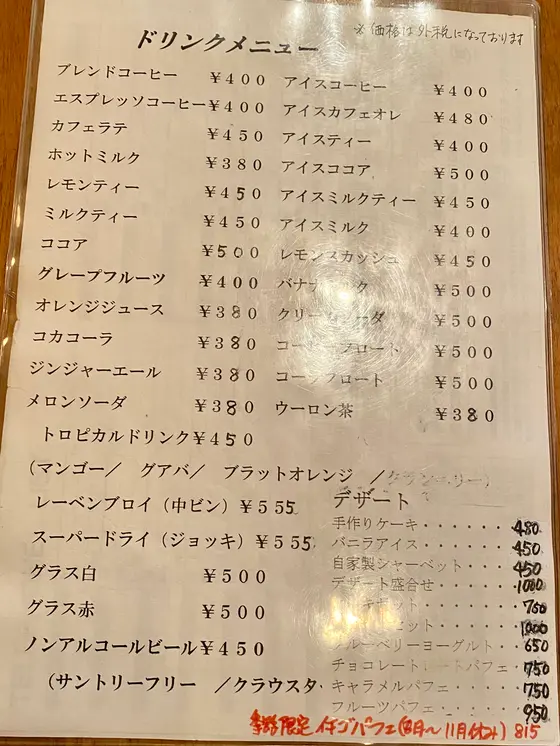 ドリンクメニュー
※価格は外税になっております
ブレンドコーヒー ￥400
エスプレッソコーヒー￥400
カフェラテ ￥450
ホットミルク ￥380
レモンティー ￥450
ミルクティー ￥450
ココア ￥500
グレープフルーツ ￥400
オレンジジュース ￥380
コカコーラ ￥380
ジンジャーエール ￥380
メロンソーダ ￥380
トロピカルドリンク￥450
アイスコーヒー ￥400
アイスカフェオレ ￥480
アイスティー ￥400
アイスココア ￥500
アイスミルクティー ￥450
アイスミルク ￥400
レモンスカッシュ ￥450
￥500
￥500
￥500
￥500
ウーロン茶 ￥380
（マンゴー／ グアバ／ ブラットオレンジ ／
レーベンブロイ（中ビン）￥555
スーパードライ（ジョッキ）￥555
グラス白 ￥500
グラス赤 ￥500
ノンアルコールビール￥450
（サントリーフリー ／クラウスタ
デザート
手作りケーキ・・・・・・・480
バニラアイス・・・・・・・450
自家製シャーベット・・・・450
デザート盛合せ・・・・・・1000
760
1000
ブルーベリーヨーグルト・・650
チョコレート パフェ・750
キャラメルパフェ・・・・・750
フルーツパフェ・・・・・・950
季節限定 イチゴパフェ(8月～11月休み) 815